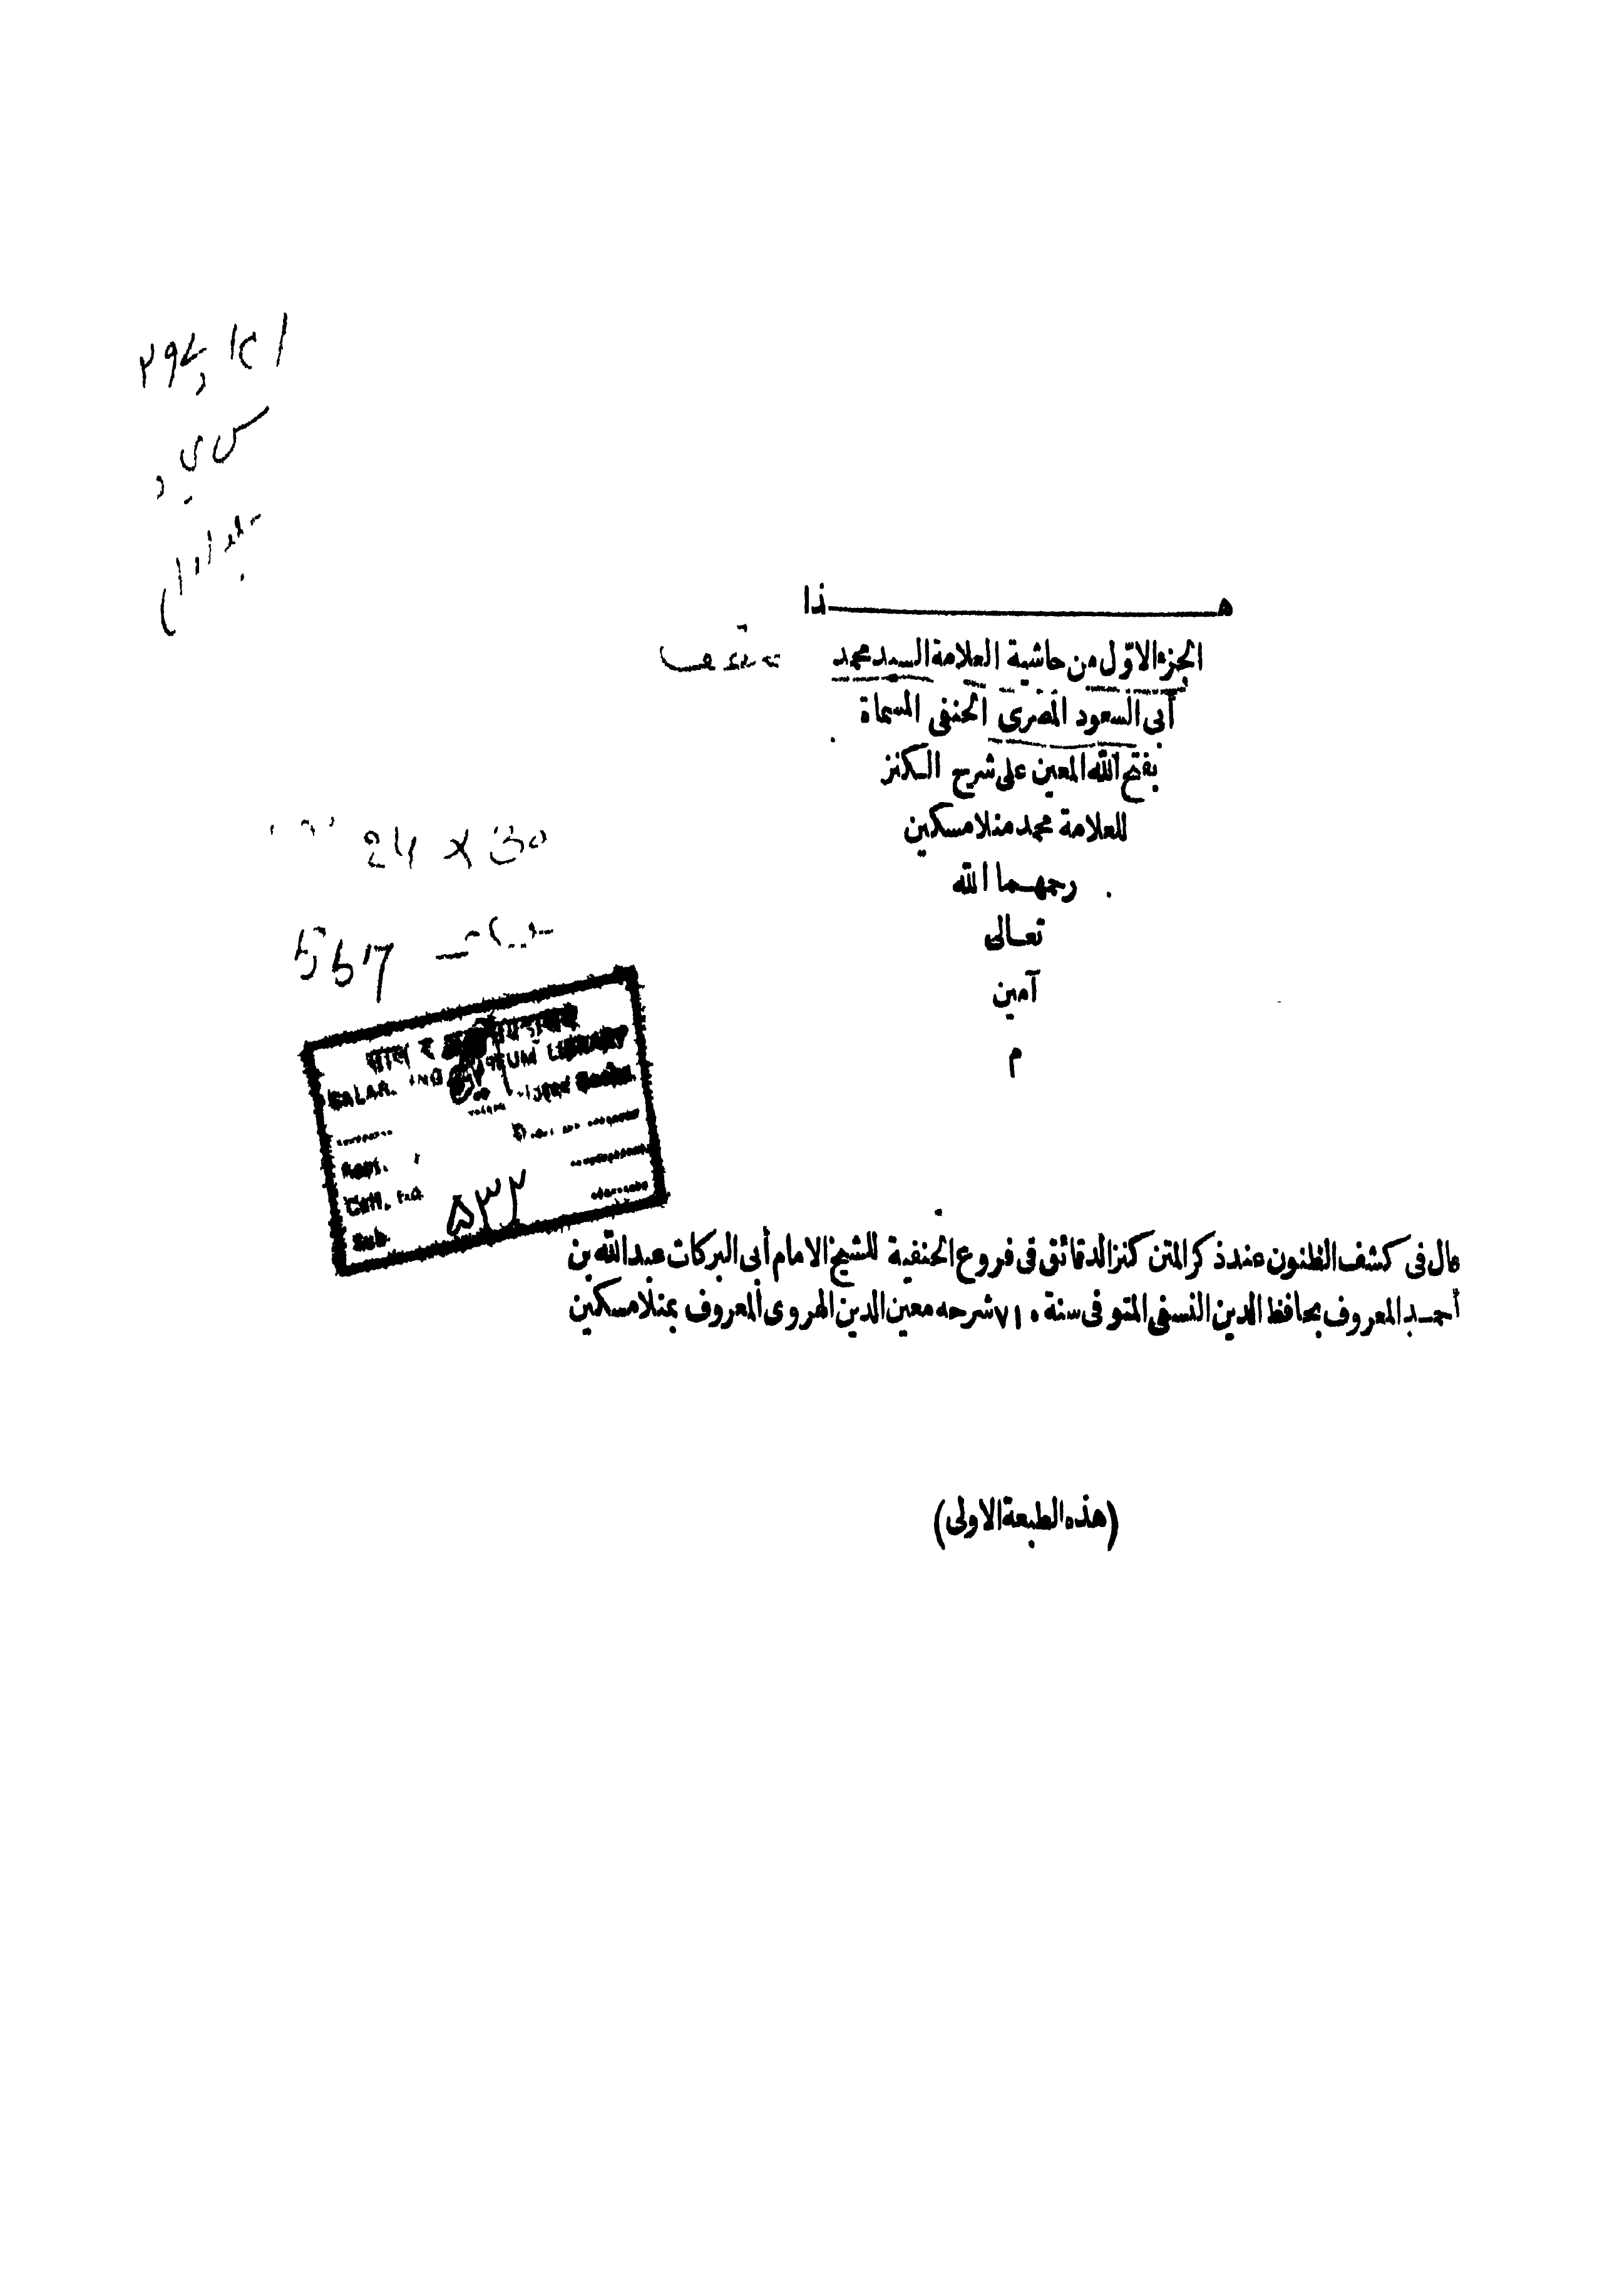 هـــــذا
الجزء الاوّل من حاشية العلامة السيد محمد
أبى السعود المصرى الحنفى المسماة
بفتح الله المعين على شرح الكنز
للعلامة محمد منلا مسكين
رحمهما الله
تعالى
آمين
م
24 x 30
557
SALAR LIBRARY
Call. No
Sub.
۵۳۲
قال فى كشف الظنون عند ذكر المتن كنز الدقائق فى فروع الحنفية للشيخ الامام أبى البركات عبد الله بن
أحمد المعروف بحافظ الدين النسفى المتوفى سنة ٧١٠ شرحه معين الدين الهروى المعروف بمنلا مسكين
(هذه الطبعة الاولى)